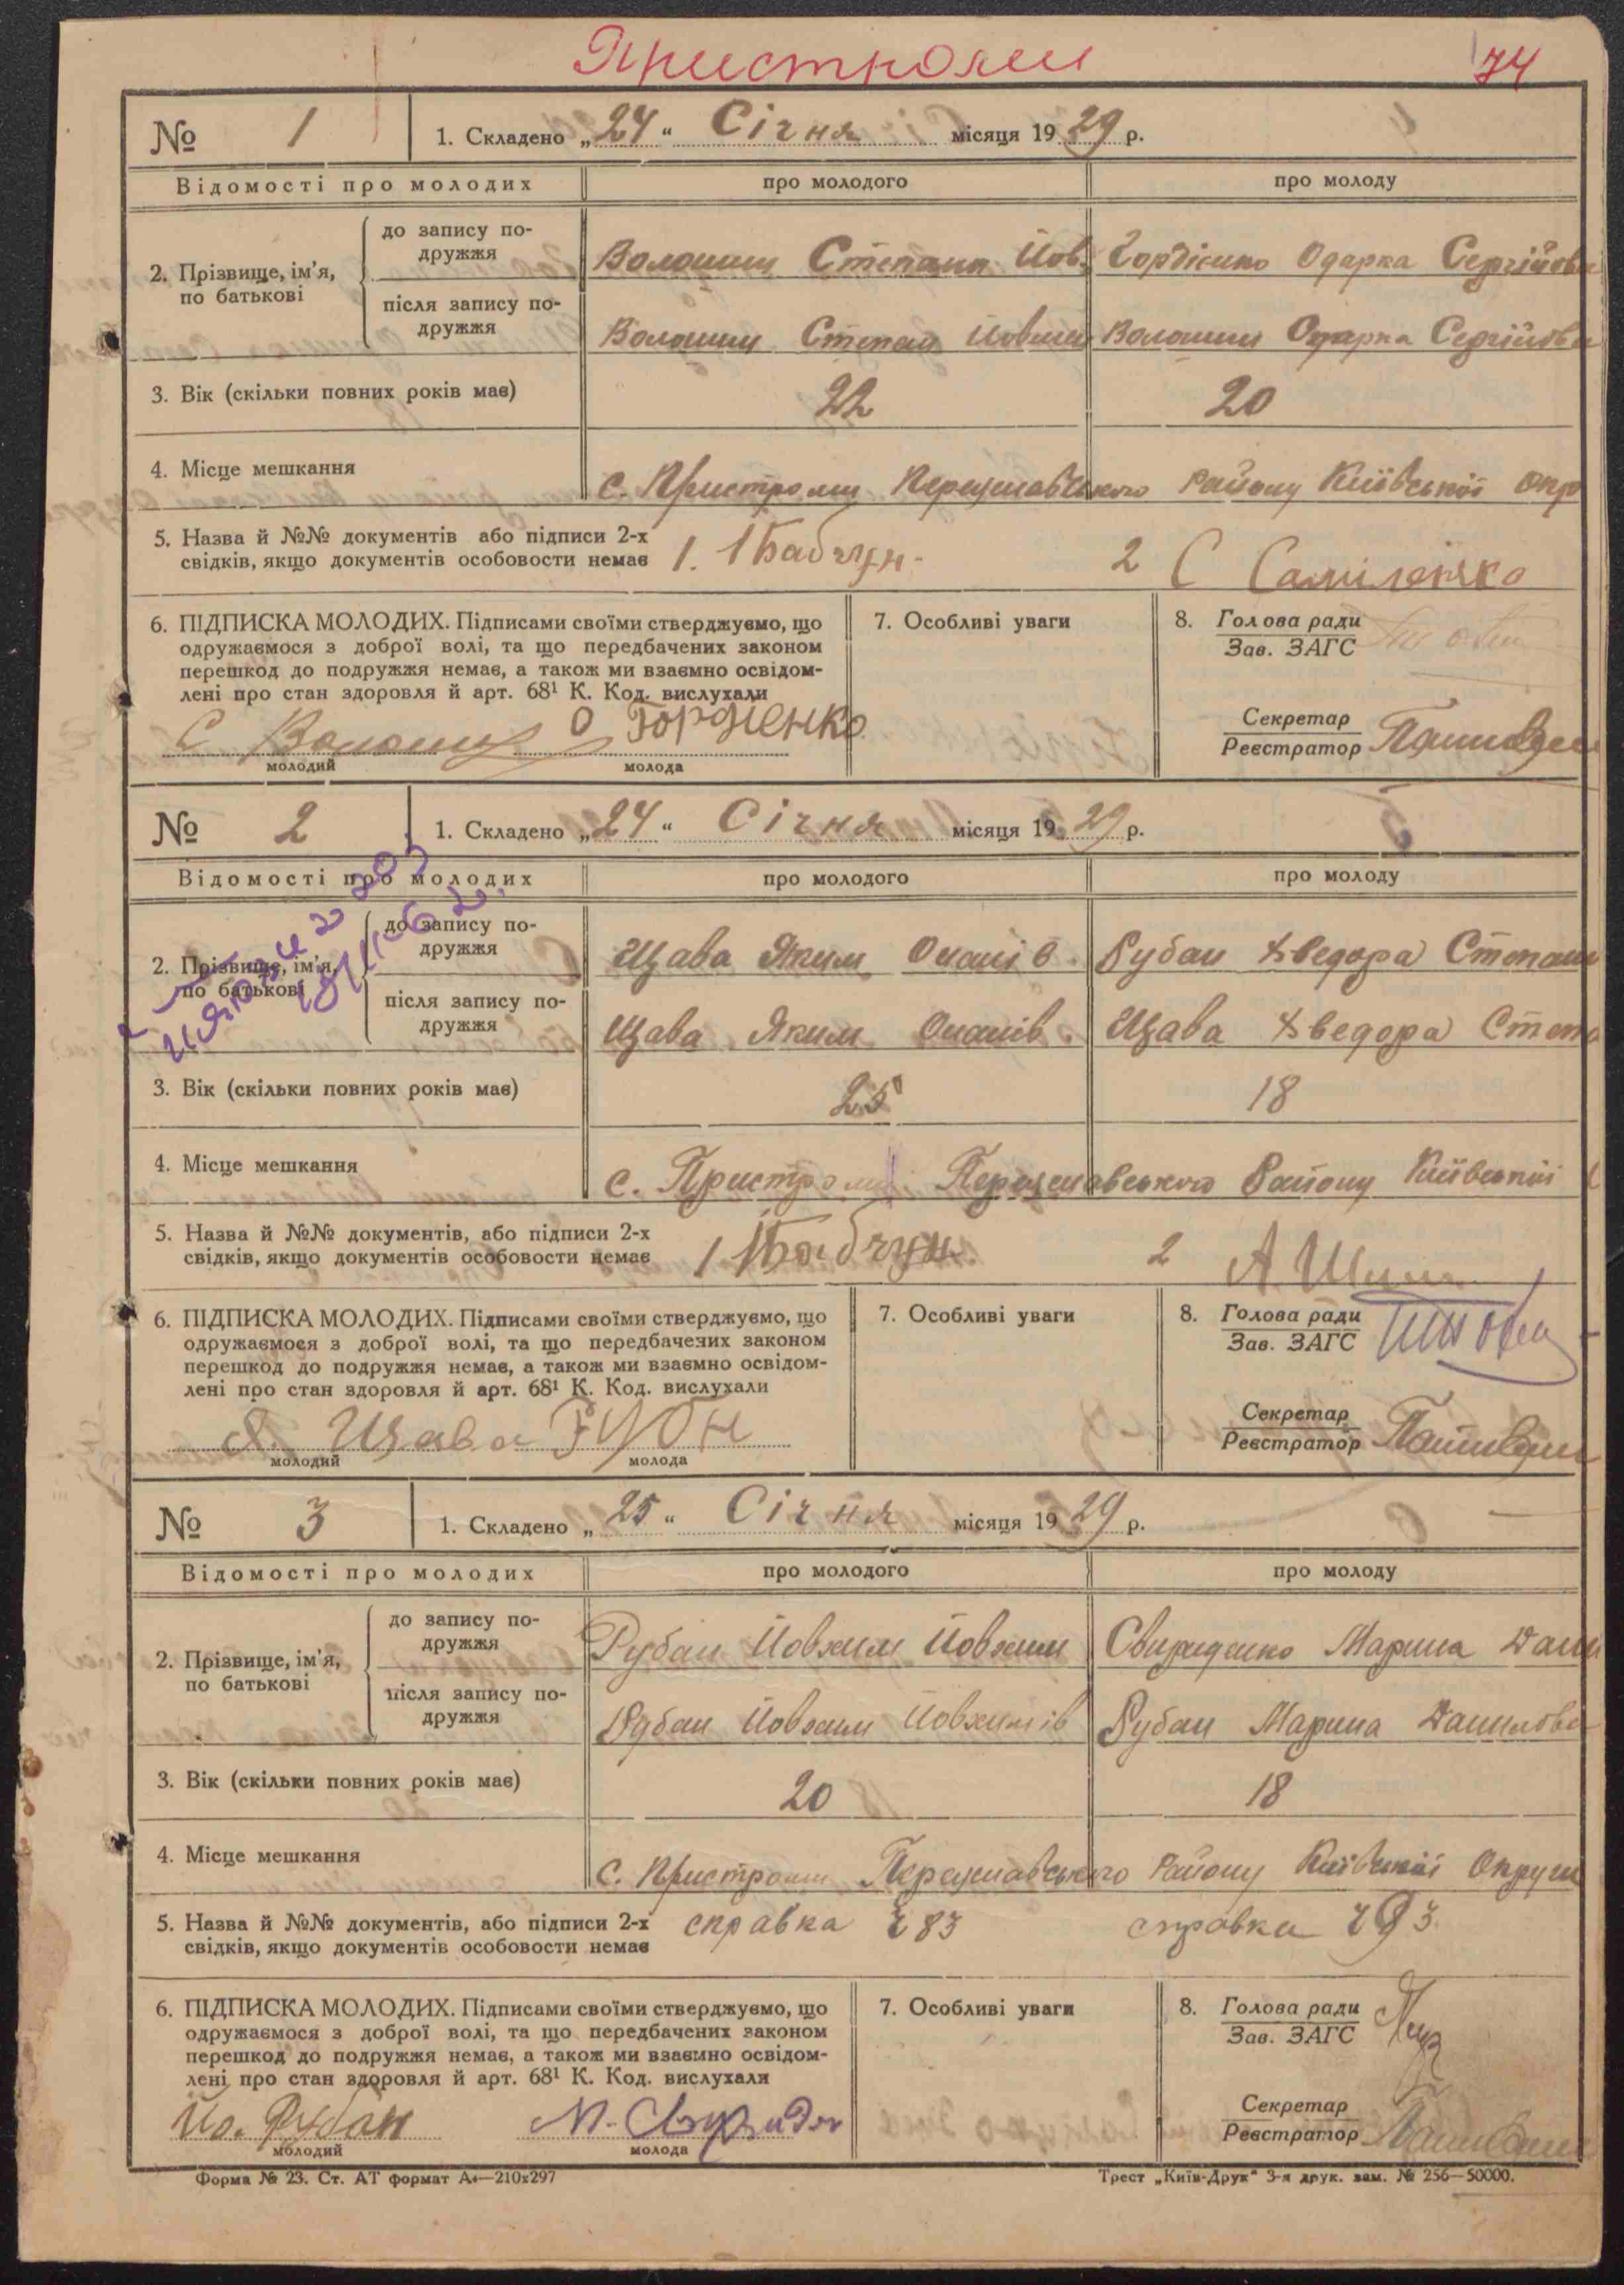 Пристроми 74
№ 1 1. Складено „24“ Січня місяця 1929 р.
Відомості про молодих про молодого про молоду
2. Прізвище, ім'я, по батькові
до запису подружжя Волошин Степан Йов. Гордієнко Одарка Сергійовн
після запису подружжя Волошин Степан Волошин Одарка Сергійовн
3. Вік (скільки повних років має) 22 20
4. Місце мешкання с. Пристроми Переяславського Району Київської Окр
5. Назва й №№ документів або підписи 2-х 1. Бабчун 2 С Самійленко
свідків, якщо документів особовости немає
6. ПІДПИСКА МОЛОДИХ. Підписами своїми стверджуємо, що 7. Особливі уваги 8. Голова ради
одружаємося з доброї волі, та що передбачених законом Зав. ЗАГС
перешкод до подружжя немає, а також ми взаємно освідом-
лені про стан здоровля й арт. 68¹ К. Код. вислухали
С Волошин О Гордіенко Секретар
молодий молода Реєстратор
№ 2 1. Складено „24“ Січня місяця 1929 р.
Відомості про молодих про молодого про молоду
2. Прізвище, ім'я, по батькові
до запису подружжя Щава Яким Рубан Хведора Степан
після запису подружжя Щава Яким Щава Хведора Степ
3. Вік (скільки повних років має) 25 18
4. Місце мешкання с. Пристроми Переяславського Району Київської
5. Назва й №№ документів, або підписи 2-х 1 Бабчун 2
свідків, якщо документів особовости немає
6. ПІДПИСКА МОЛОДИХ. Підписами своїми стверджуємо, що 7. Особливі уваги 8. Голова ради
одружаємося з доброї волі, та що передбачених законом Зав. ЗАГС
перешкод до подружжя немає, а також ми взаємно освідом-
лені про стан здоровля й арт. 68¹ К. Код. вислухали
Я. Щава Секретар
молодий молода Реєстратор
№ 3 1. Складено „25“ Січня місяця 1929 р.
Відомості про молодих про молодого про молоду
2. Прізвище, ім'я, по батькові
до запису подружжя Рубан Йовхим Йовхим Свириденко Марина Дани
після запису подружжя Рубан Йовхим Йовхимів Рубан Марина Даниловн
3. Вік (скільки повних років має) 20 18
4. Місце мешкання с. Пристроми Переяславського Району Київської Округи
5. Назва й №№ документів, або підписи 2-х справка ч 83 справка ч 93
свідків, якщо документів особовости немає
6. ПІДПИСКА МОЛОДИХ. Підписами своїми стверджуємо, що 7. Особливі уваги 8. Голова ради
одружаємося з доброї волі, та що передбачених законом Зав. ЗАГС
перешкод до подружжя немає, а також ми взаємно освідом-
лені про стан здоровля й арт. 68¹ К. Код. вислухали
Йо. Рубан М. Секретар
молодий молода Реєстратор
Форма № 23. Ст. АТ формат А4—210х297 Трест „Київ-Друк“ 3-я друк. зам. № 256—50000.